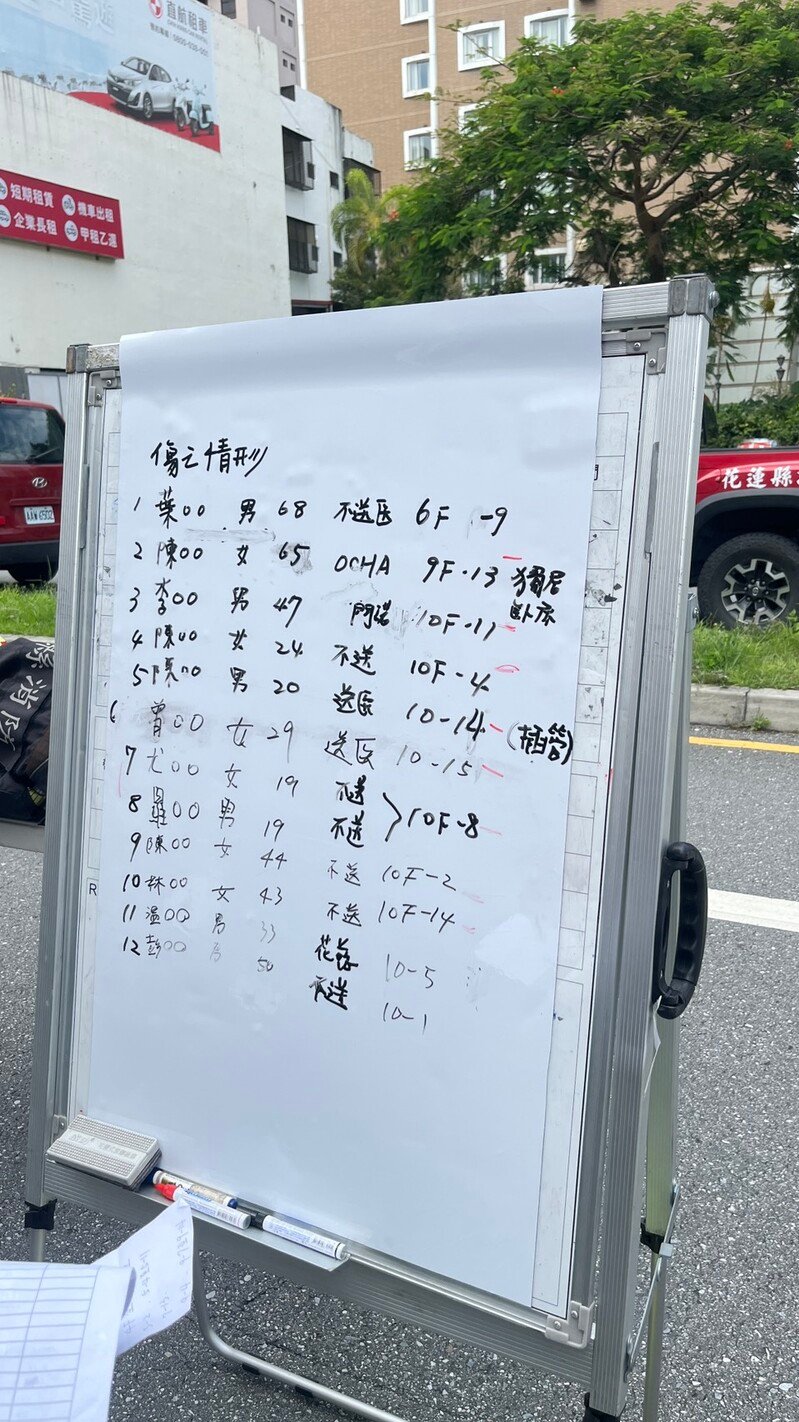 直航租車
0800-038-001
短期租賃 機車出租
企業長租 甲租乙還
傷亡情形
1 葉OO 男 68 不送医 6F -9
2 陳OO 女 65 OCHA 9F-13 獨居
臥床
3 李OO 男 47 門諾 10F-11
4 陳OO 女 24 不送 10F-4
5 陳OO 男 20 送医 10-14 (插管)
6 曾OO 女 29 送医 10-15
7 尤OO 女 19 不送
8 羅OO 男 19 不送 } 10F-8
9 陳OO 女 44 不送 10F-2
10 林OO 女 43 不送 10F-14
11 溫OO 男 33 花慈 10-5
12 彭OO 男 50 不送 10-1
花蓮縣
R